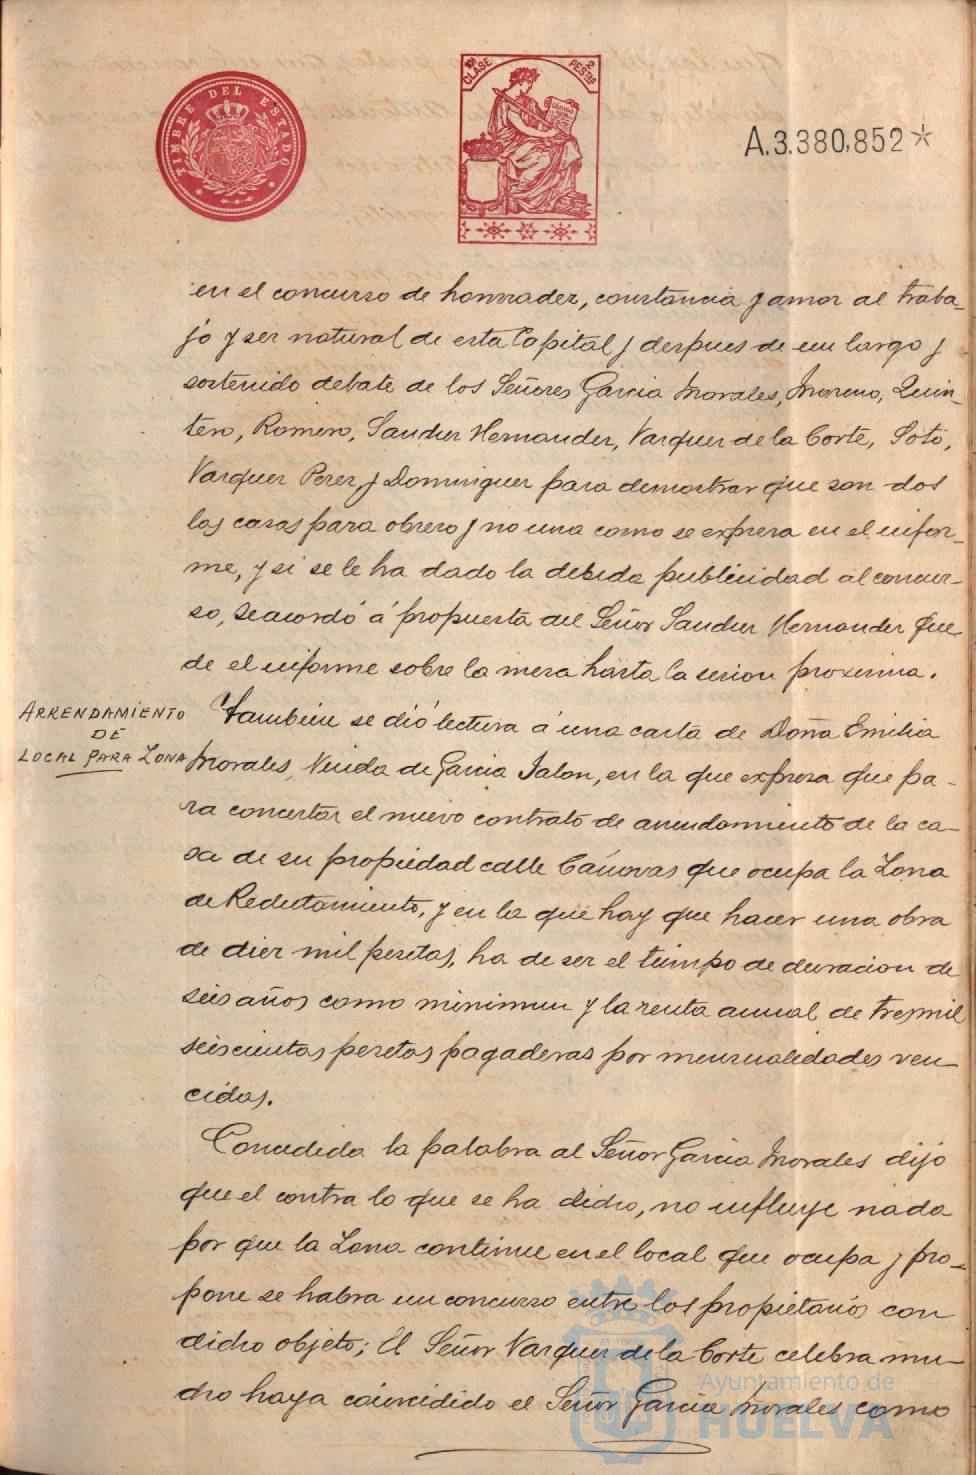 TIMBRE DEL ESTADO
10ª CLASE
2 PESTAS
CÓDIGO
A.3.380,852*
en el concurso de honradez, constancia y amor al traba-
jo y ser natural de esta Capital y despues de un largo y
sostenido debate de los Señores Garcia Morales, Moreno, Quin-
tero, Romero, Sanchez Hernandez, Vazquez de la Corte, Soto,
Vazquez Perez, y Dominguez para demostrar que son dos
las casas para obrero y no una como se expresa en el infor-
me, y si se le ha dado la debida publicidad al concur-
so, se acordó á propuesta del Señor Sanchez Hernandez que-
de el informe sobre la mesa hasta la sesion proxima.
ARRENDAMIENTO
DE
LOCAL PARA ZONA
Tambien se dió lectura á una carta de Doña Emilia
Morales, Viuda de Garcia Jalon, en la que expresa que pa-
ra concertar el nuevo contrato de arrendamiento de la ca-
sa de su propiedad calle Cánovas que ocupa la Zona
de Reclutamiento, y en la que hay que hacer una obra
de diez mil pesetas, ha de ser el tiempo de duracion de
seis años como minimun y la renta anual de tres mil
seiscientas pesetas pagaderas por mensualidades ven-
cidas.
Concedida la palabra al Señor Garcia Morales dijo
que el contra lo que se ha dicho, no influye nada
por que la Zona continue en el local que ocupa y pro-
pone se habra un concurso entre los propietarios con
dicho objeto; El Señor Vazquez de la Corte celebra mu-
cho haya coincidido el Señor Garcia Morales como
Ayuntamiento de
HUELVA